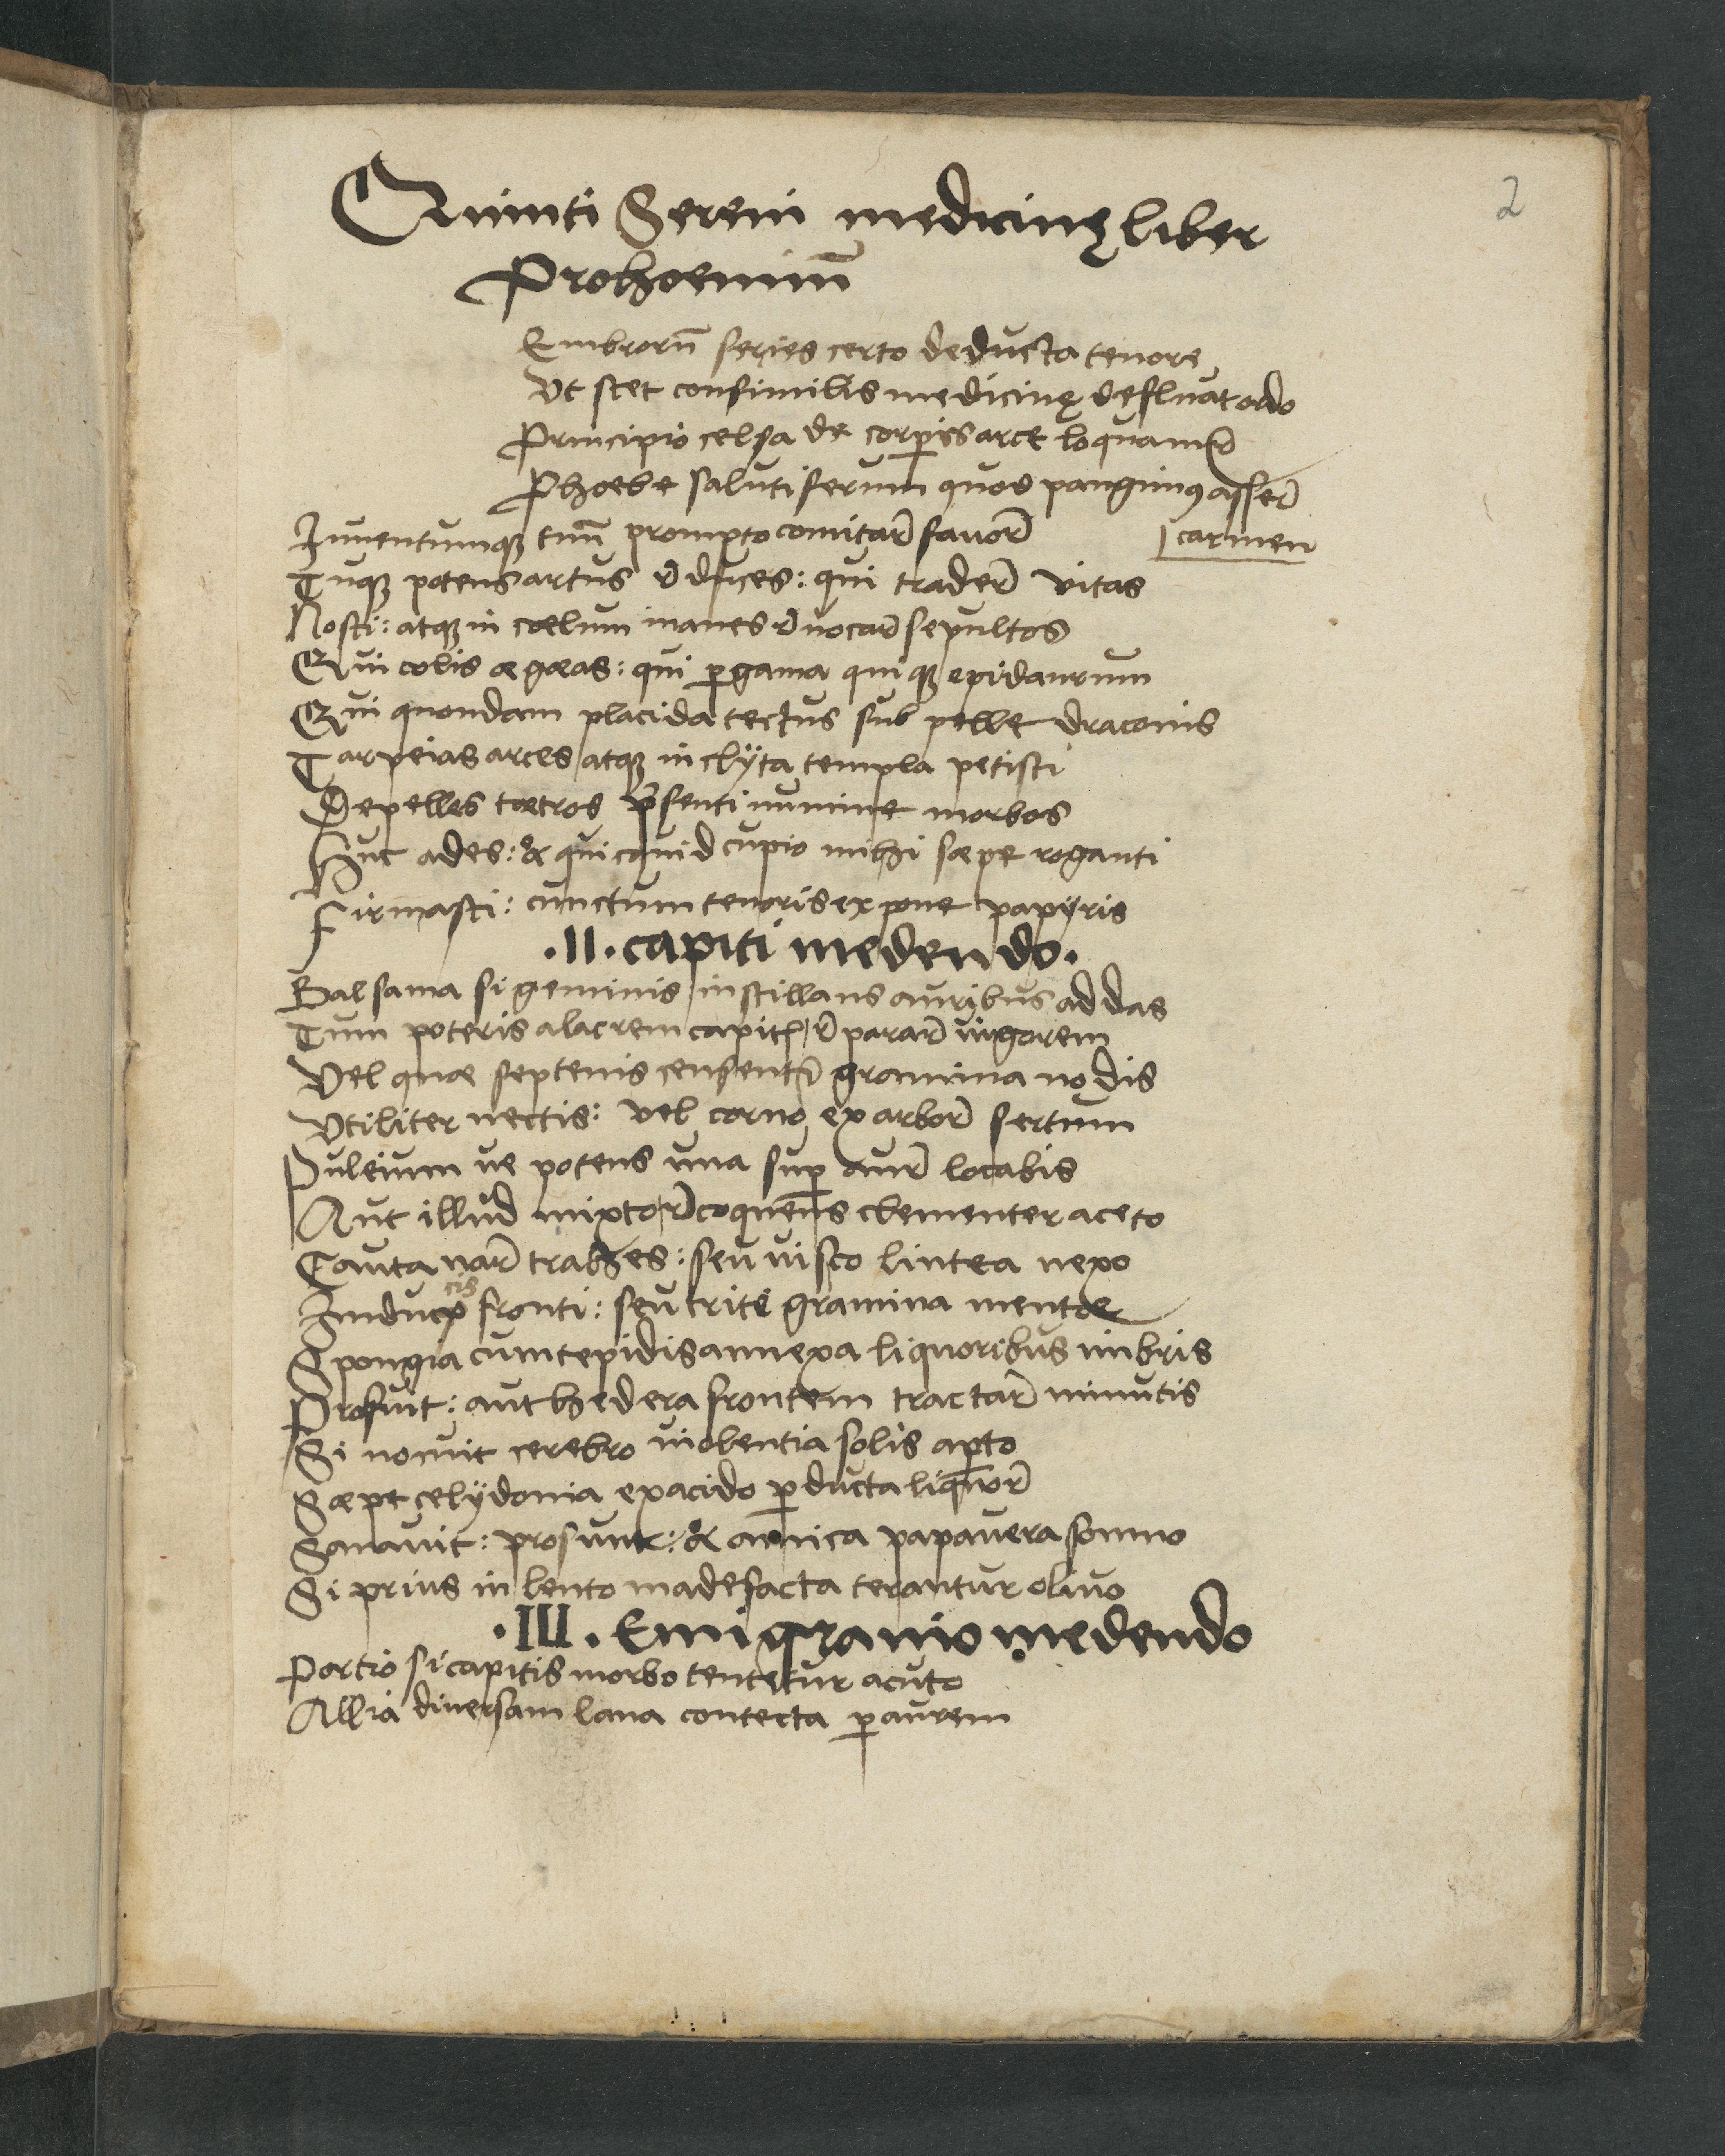 2
Quinti Sereni medicinę liber
Prohoemiū
Embrorū series certo deducta tenore
Ut stet consimilis medicinę defluat ordo
Principio celsa de corꝑis arce loquamur̄
Phoebe salutiferum quod pangimꝰ asser̄
Inuentumqꝫ tuū prompto comitar̄ fauor̄ | carmen
Tuqꝫ potens artus r̄duces: qui trader̄ vitas
Nosti: atqꝫ in coelum manes r̄uocar̄ sepultos
Qui colis aegaeas: qui ꝑgama quiqꝫ epidaurum
Qui quondam placida tectus sub pelle draconis
Tarpeias arces atqꝫ inclÿta templa petisti
Depelles taetros p̄senti numine morbos
Huc ades: & quicquid cupio mihi saepe roganti
Firmasti: cunctum teneris expone papÿris
.II. capiti medendo.
Balsama si geminis instillans auribus addas
Tum poteris alacrem capitis r̄parar̄ uigorem
Vel quae septenis censentur̄ gramina nodis
Utiliter nectis: vel corno ex arbor̄ sertum
Puleium ue potens una suꝑ aur̄ locabis
Aut illud mixto r̄coquens clementer aceto
Cauta nar̄ trahes: seu uisco lintea nexo
cis
Induc fronti: seu trite gramina mentae
Spongia cum tepidis annexa liquoribus imbris
Profuit: aut hedera frontem tractar̄ minutis
Si nocuit cerebro uiolentia solis aꝑto
Saepe celÿdonia ex acido ꝑducta liquor̄
Sanauit: prosunt: & amica papauera somno
Si prius in lento madefacta terantur oliuo
.III. Emigranio medendo
Portio si capitis morbo tentetur acuto
Allia diuersam lana contecta ꝑ aurem